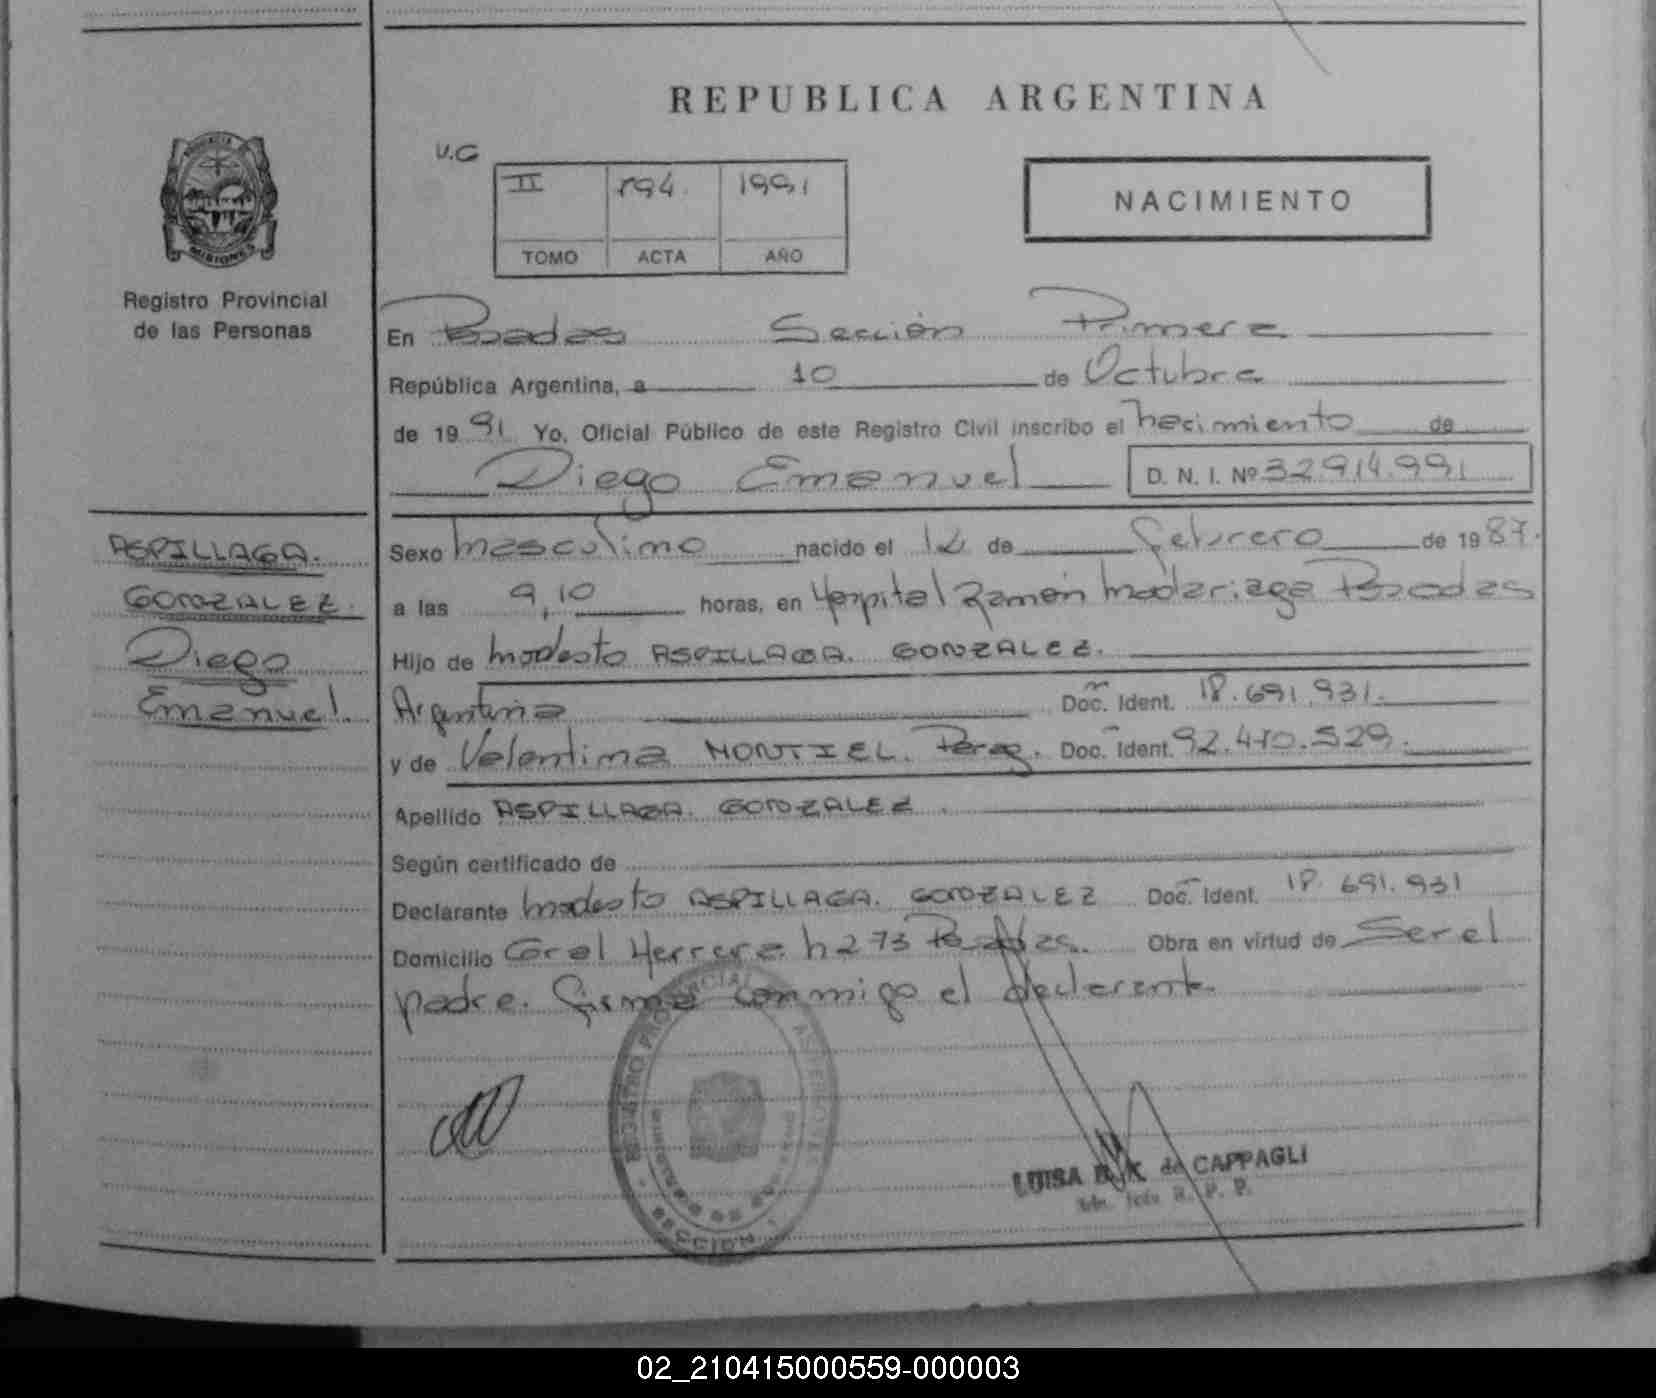 REPUBLICA ARGENTINA
PROVINCIA
MISIONES
Registro Provincial
de las Personas
U.G
II 194. 1991
TOMO ACTA AÑO
NACIMIENTO
En Posadas Sección Primera
República Argentina, a 10 de Octubre
de 1991 Yo, Oficial Público de este Registro Civil inscribo el nacimiento de
Diego Emanuel D. N. I. Nº 32.914.991
ASPILLAGA.
GONZALEZ.
Diego
Emanuel.
Sexo masculino nacido el de febrero de 1987.
a las 9,10 horas, en Hospital Ramón Madariaga Posadas
Hijo de Modesto ASPILLAGA. GONZALEZ.
Argentina Doc. Ident. 18.691.931.
y de Valentina MONTIEL. Perez. Doc. Ident. 92.410.529.
Apellido ASPILLAGA. GONZALEZ.
Según certificado de
Declarante Modesto ASPILLAGA. GONZALEZ Doc. Ident. 18.691.931
Domicilio Gral Herrera 273 Posadas. Obra en virtud de Ser el
padre. Firma conmigo el declarante.
REGISTRO PROVINCIAL
SECCION
LUISA de CAPPAGLI
R. P. P.
02_210415000559-000003